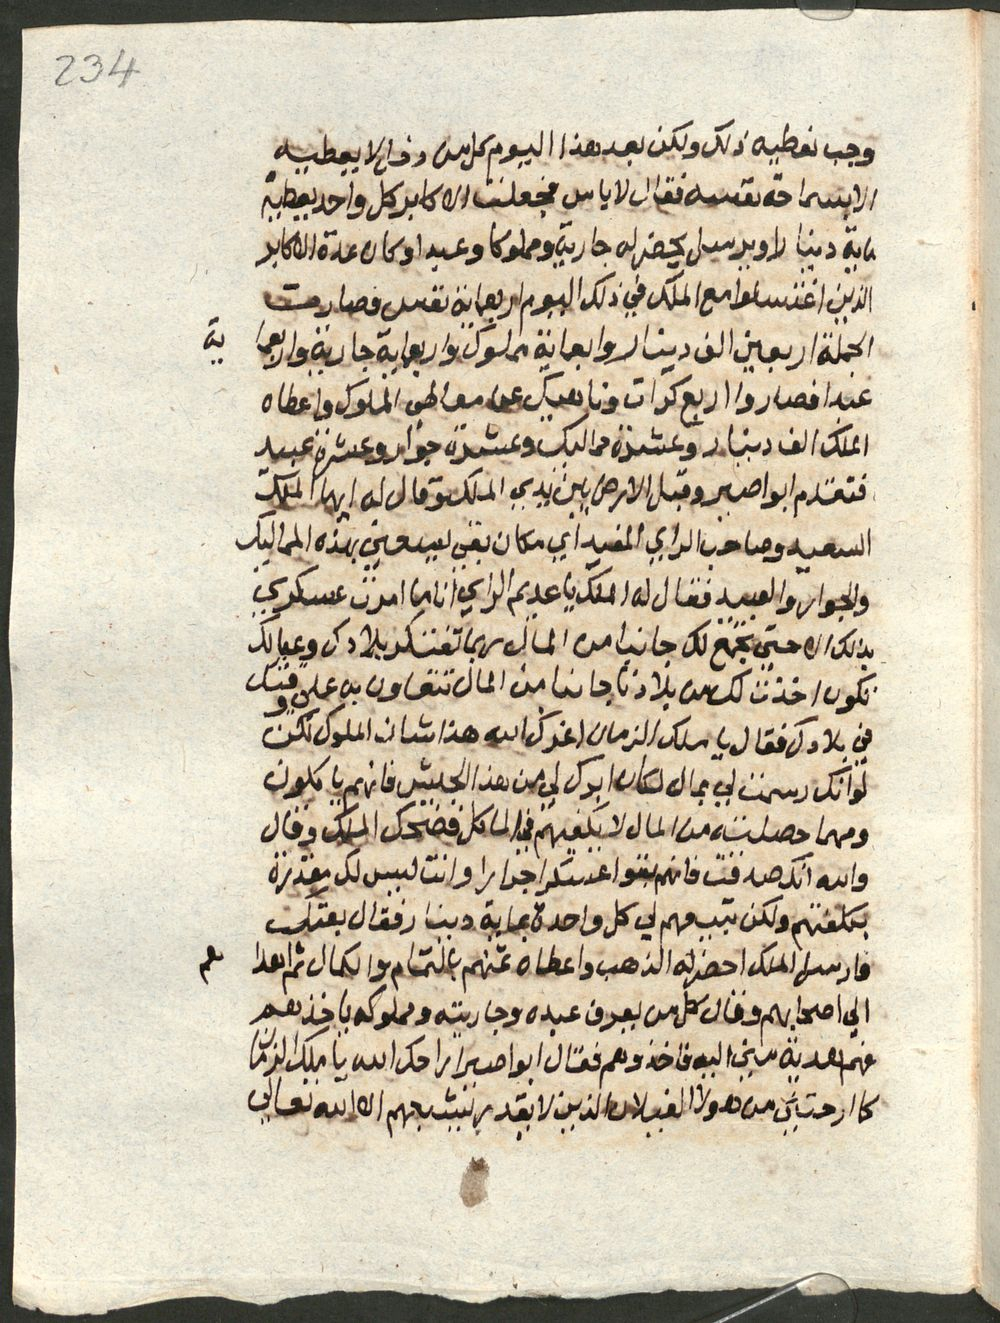 234
وجب نعطيه ذلك ولكن بعد هذا اليوم كل من دخل لا يعطيه
الا بسماحة نفسه فقال لا باس فجعلت الاكابر كل واحد يعطيه
ماية دينار ويرسل يحضر له جارية ومملوكا وعبدا وكان عدة الاكابر
الذين اغتسلوا مع الملك في ذلك اليوم اربعماية نفس فصارت
الجملة اربعين الف دينار واربعماية مملوك واربعماية جارية واربعما ية
عبد افصاروا اربع كرات وناهيك عن معالهن الملوك واعطاه
الملك الف دينار وعشرة مماليك وعشرة جوار وعشرة عبيد
فتقدم ابو اصير وقبل الارض بين يدي الملك وقال له ايها الملك
السعيد وصاحب الراي المفيد اي مكان بقى ليسعني بهذه المماليك
والجوار والعبيد فقال له الملك يا عديم الراي انا ما امرت عسكري
بذلك الا حتى نجمع لك جانبا من المال ربما تفتكر بلادك وعيالك
تكون اخذت لك من بلادنا جانبا من المال تتعاون به على وقتك
في بلادك فقال يا ملك الزمان اعزك الله هذا شان الملوك لكن
لو انك رسمت لي بمال لكان ابرك لي من هذا الجيش فانهم ياكلون
ومهما حصلته من المال لا يكفيهم في الماكل فضحك الملك وقال
والله انك صدقت فانهم بقوا عسكرا جرارا وانت ليس لك مقدرة
بكلفتهم ولكن تبيعهم لي كل واحدة بماية دينار فقال بعتك
فارسل الملك احضر له الذهب واعطاه ثمنهم بالتمام والكمال ثم اهدا هم
الى اصحابهم وقال كل من يعرف عبده وجاريته ومملوكه ياخذهم
فهم هدية مني اليه فاخذوهم فقال ابو اصير اراحك الله يا ملك الزمان
كما ارحتني من هولا الغيلان الذين لا يقدر يشبعهم الا الله تعالى